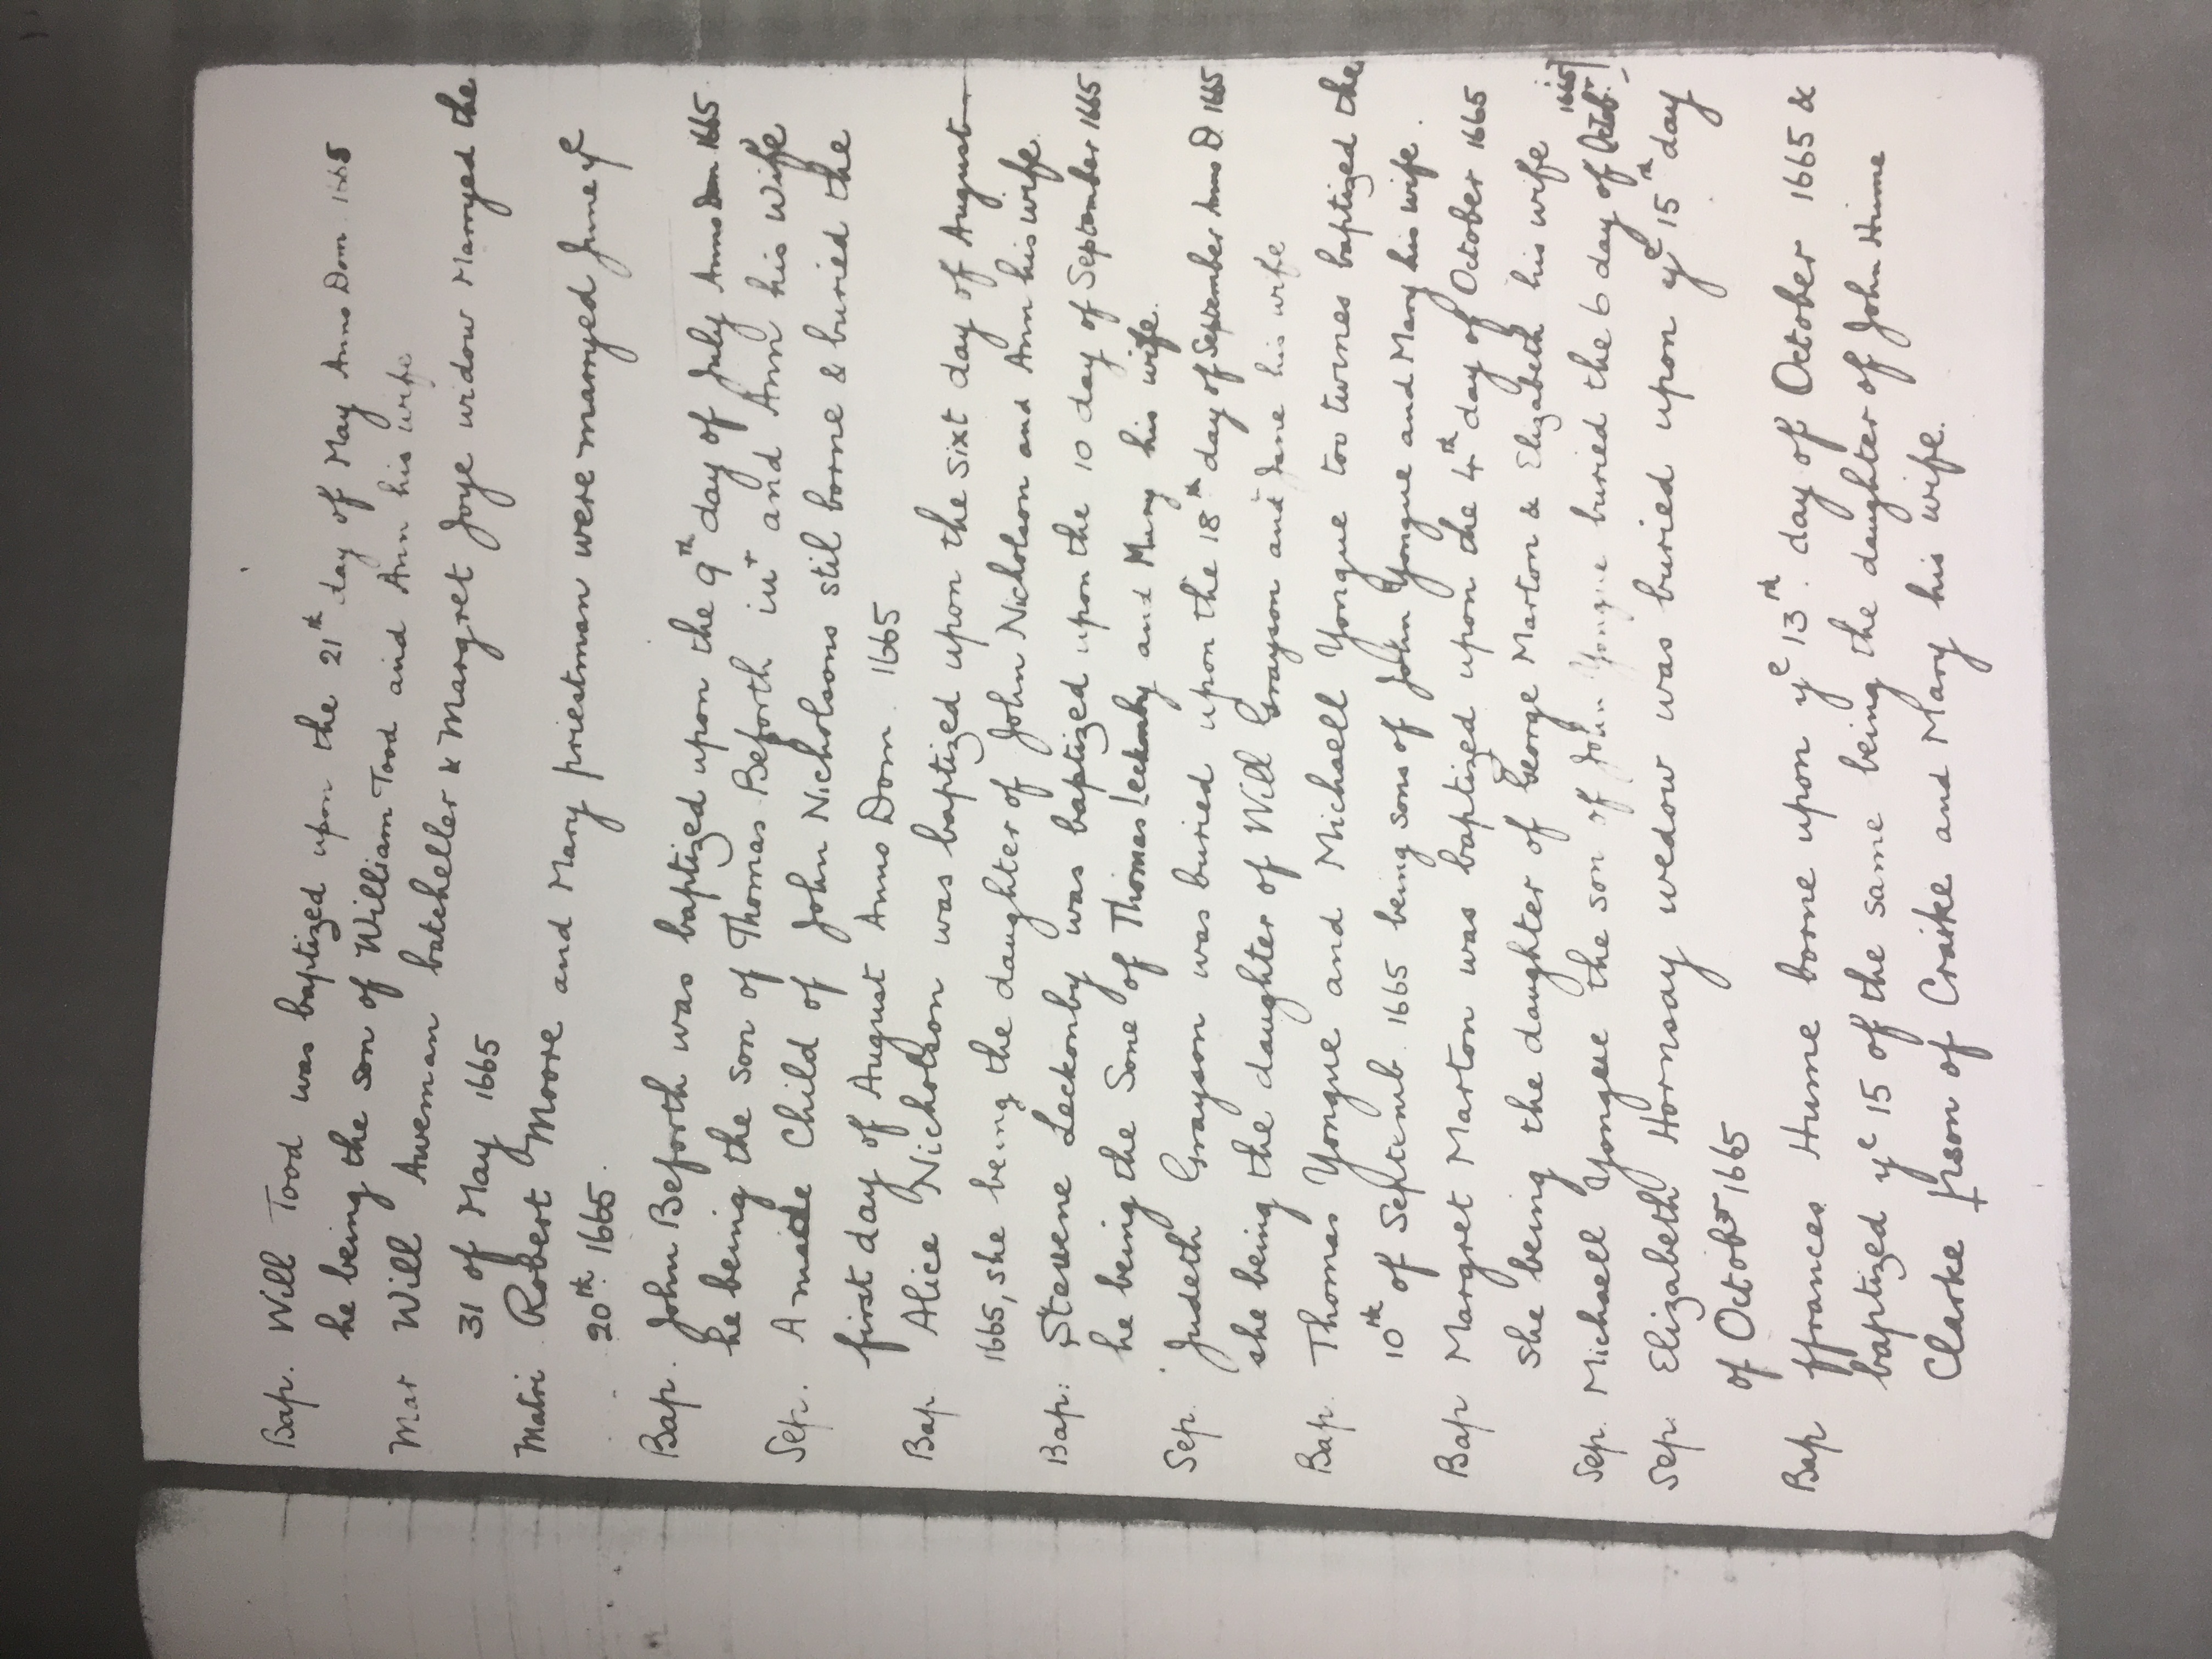 Bap. Will Tood was baptized upon the 21th day of May Anno Dom. 1665
he being the son of William Tood and Ann his wife
Mar Will Aweman batcheller & Margret Joye widow Marryed the
31 of May 1665
Matri Robert Moore and Mary priestman were marryed June ye
20th 1665.
Bap. John Beforth was baptized upon the 9th day of July Anno Dom 1665.
he being the son of Thomas Beforth iur and Ann his wife
Sep. A maide Child of John Nicholsons stil borne & buried the
first day of August Anno Dom. 1665
Bap Alice Nicholson was baptized upon the Sixt day of August
1665, she being the daughter of John Nicholson and Ann his wife.
Bap: Stevene Leckonby was baptized upon the 10 day of September 1665
he being the Sone of Thomas Leckonby and Mary his wife.
Sep. Judeth Grayson was buried upon the 18th day of September Anno D. 1665
she being the daughter of Will Grayson and Jane his wife
Bap. Thomas Yongue and Michaell Yongue too twines baptized the
10th of Septemb. 1665 being sons of John Yongue and Mary his wife.
Bap Margret Marton was baptized upon the 4th day of October 1665
She being the daughter of George Marton & Elizabeth his wife
Sep. Michaell Yongue the son of John Yongue buried the 6 day of Octob. 1665
Sep. Elizabeth Hornsay wedow was buried upon ye 15th day
of Octobr 1665
Bap ffrances Hume borne upon ye 13th day of October 1665 &
baptized ye 15 of the same being the daughter of John Hume
Clarke pson of Craike and Mary his wife.